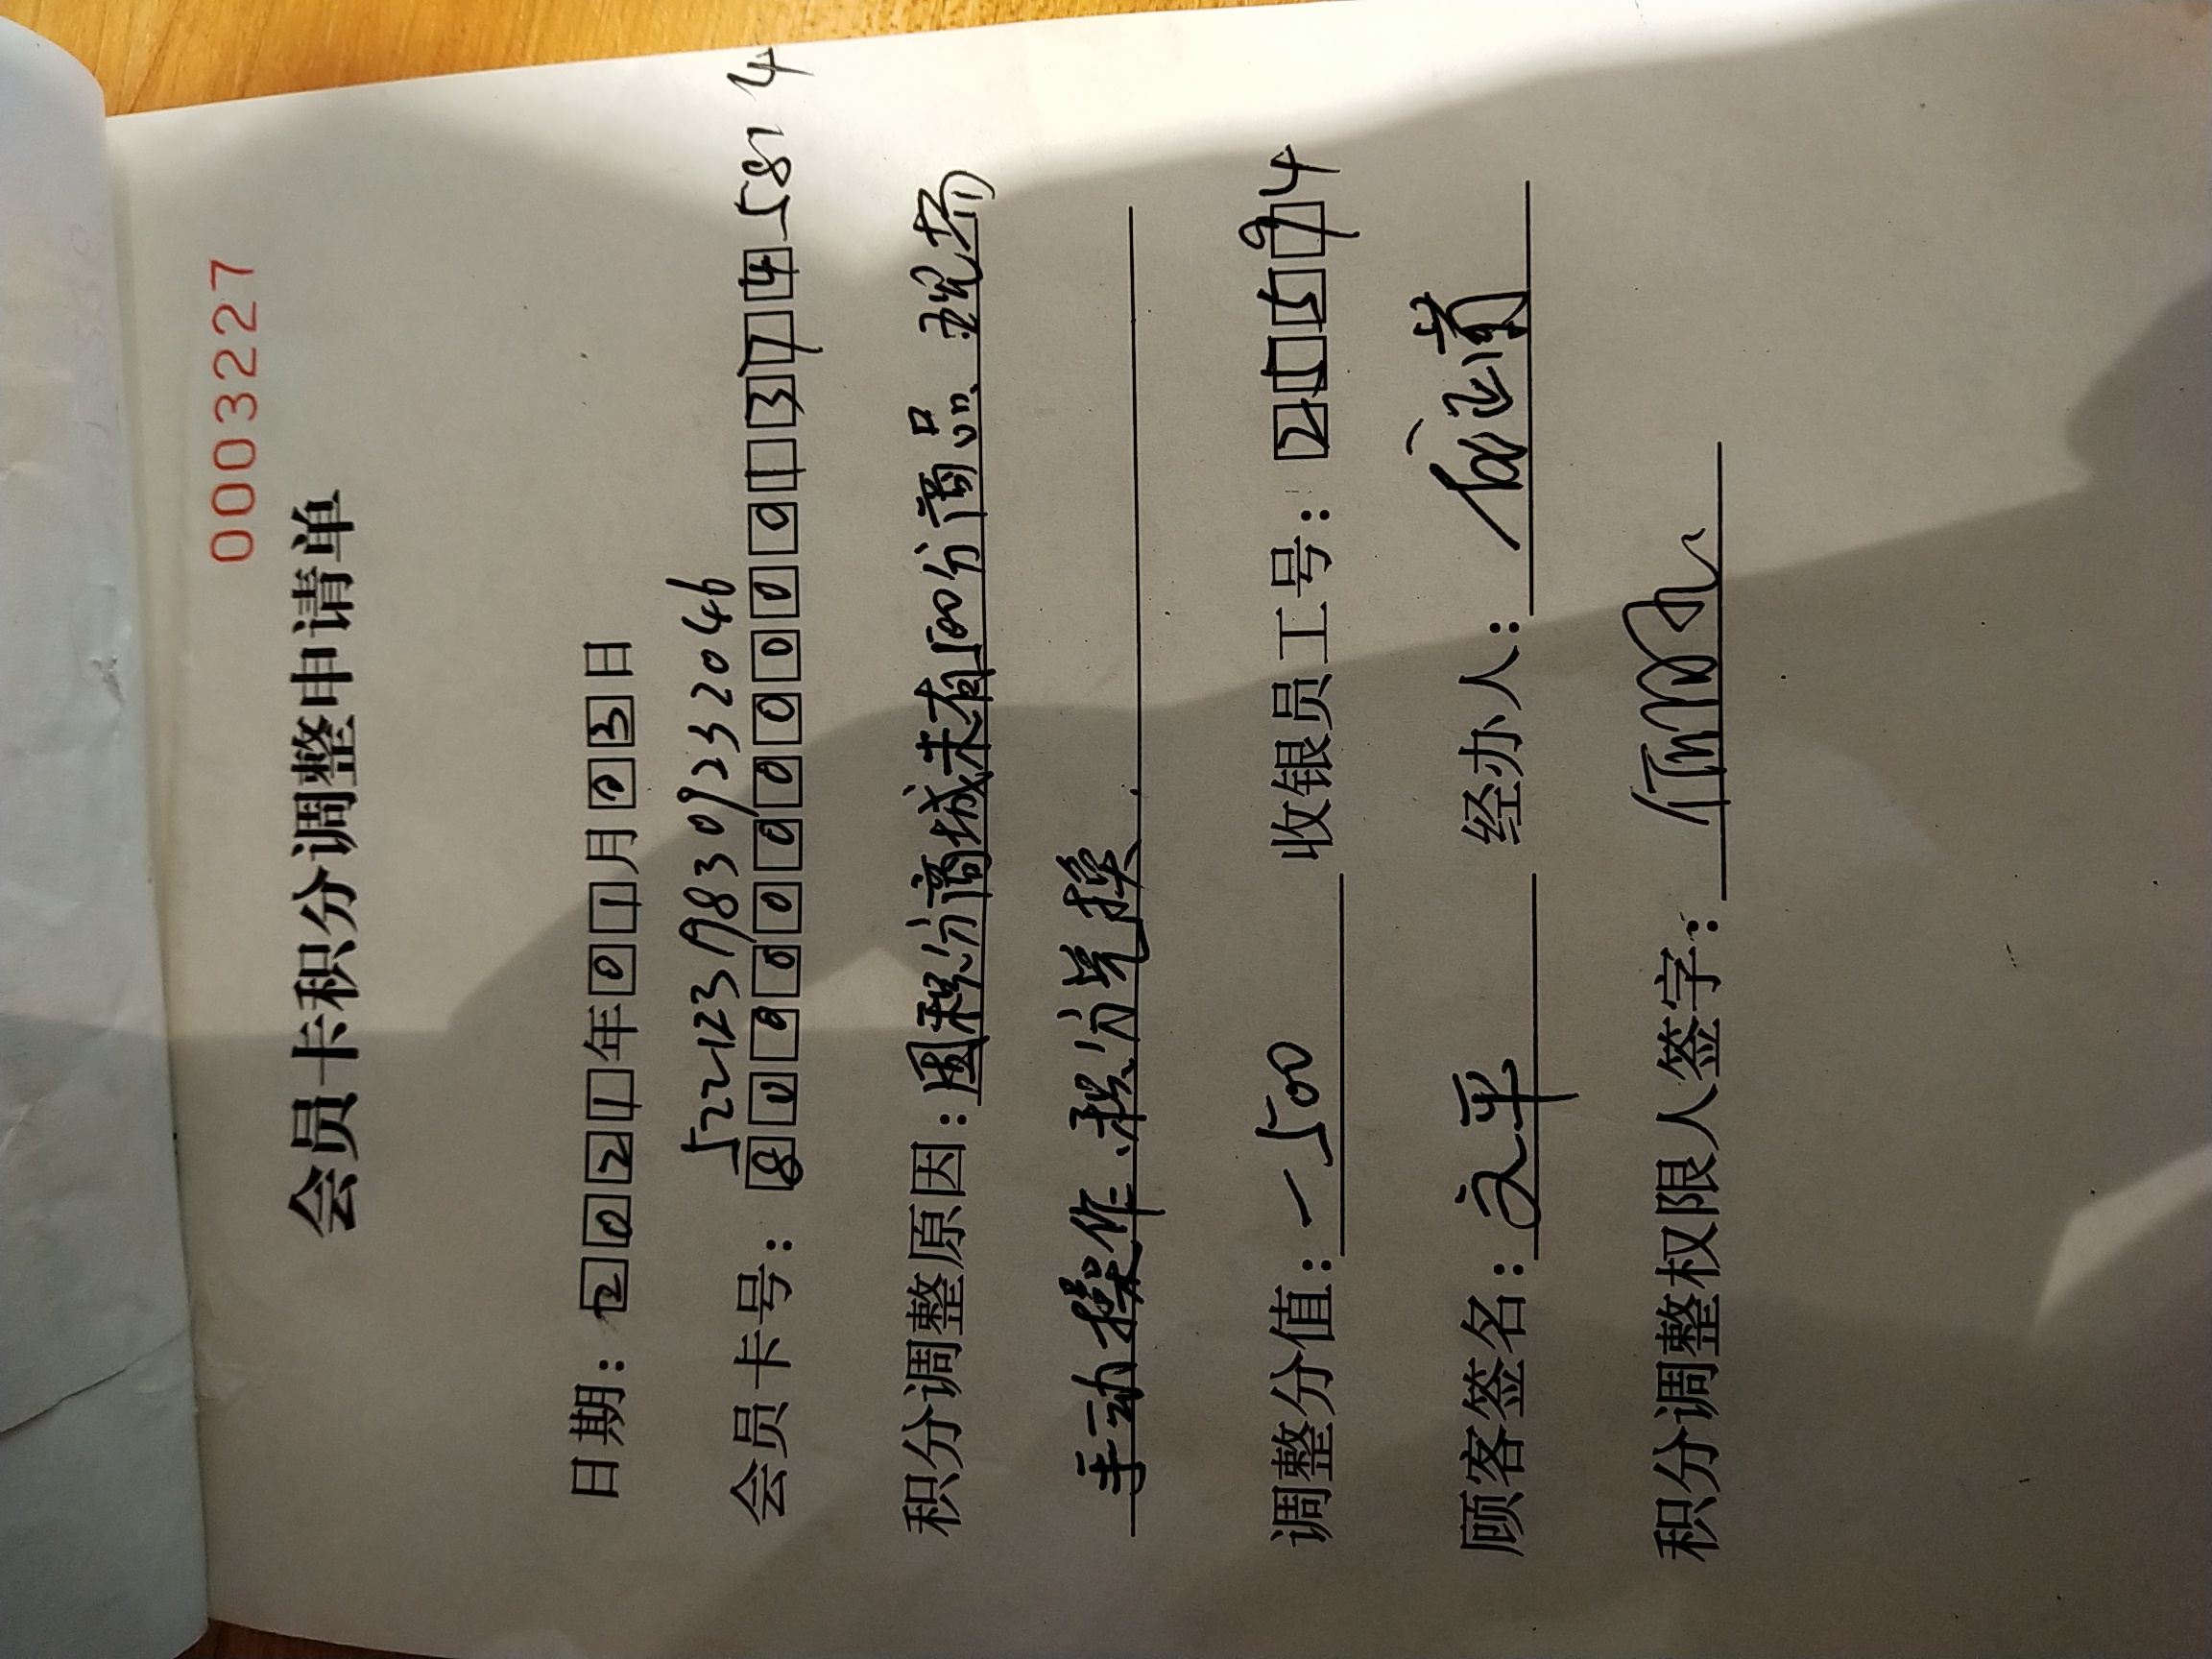 0003227
会员卡积分调整申请单
日期：2021年01月03日
522123198309232046
会员卡号：80000000000013745824
积分调整原因：因积分商城未有500分商品 现场
手动操作积分兑换
调整分值：-500 收银员工号：21594
顾客签名：文平 经办人：
积分调整权限人签字：